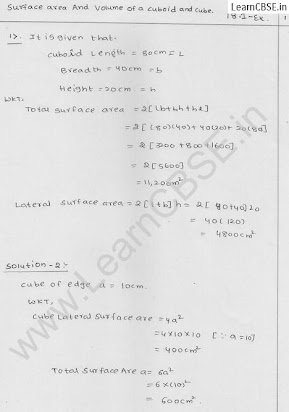 LearnCBSE.in
Surface area And Volume of a cuboid and cube.
18.2-Ex. 1
1>. It is given that.
cuboid Length = 80cm = L
Breadth = 40cm = b
Height = 20cm = h
WKT,
Total Surface area = 2[lb+bh+hl]
= 2[(80)(40)+40(20)+20(80)]
= 2[3200+800+1600]
= 2[5600]
= 11,200m²
Lateral Surface area = 2[l+b]h = 2[80+40]20
= 40(120)
= 4800cm²
Solution-2:-
cube of edge a = 10cm.
WKT,
Cube Lateral Surface are = 4a²
= 4×10×10 [∵ a=10]
= 400cm²
Total Surface Are a = 6a²
= 6×(10)²
= 600cm².
www.LearnCBSE.in